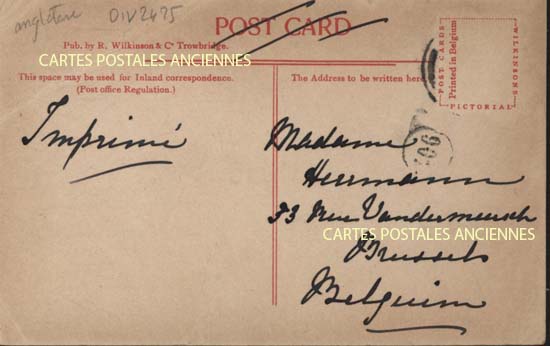 angleterre DIV2475
POST CARD
Pub. by R. Wilkinson & Co Trowbridge.
CARTES POSTALES ANCIENNES
This space may be used for Inland correspondence.
(Post office Regulation.)
The Address to be written here
POST CARDS
Printed in Belgium
WILKINSONS
PICTORIAL
Imprimé
Madame
Herrmann
33 Rue Vandermeersch
CARTES POSTALES ANCIENNES
Brussels
Belgium